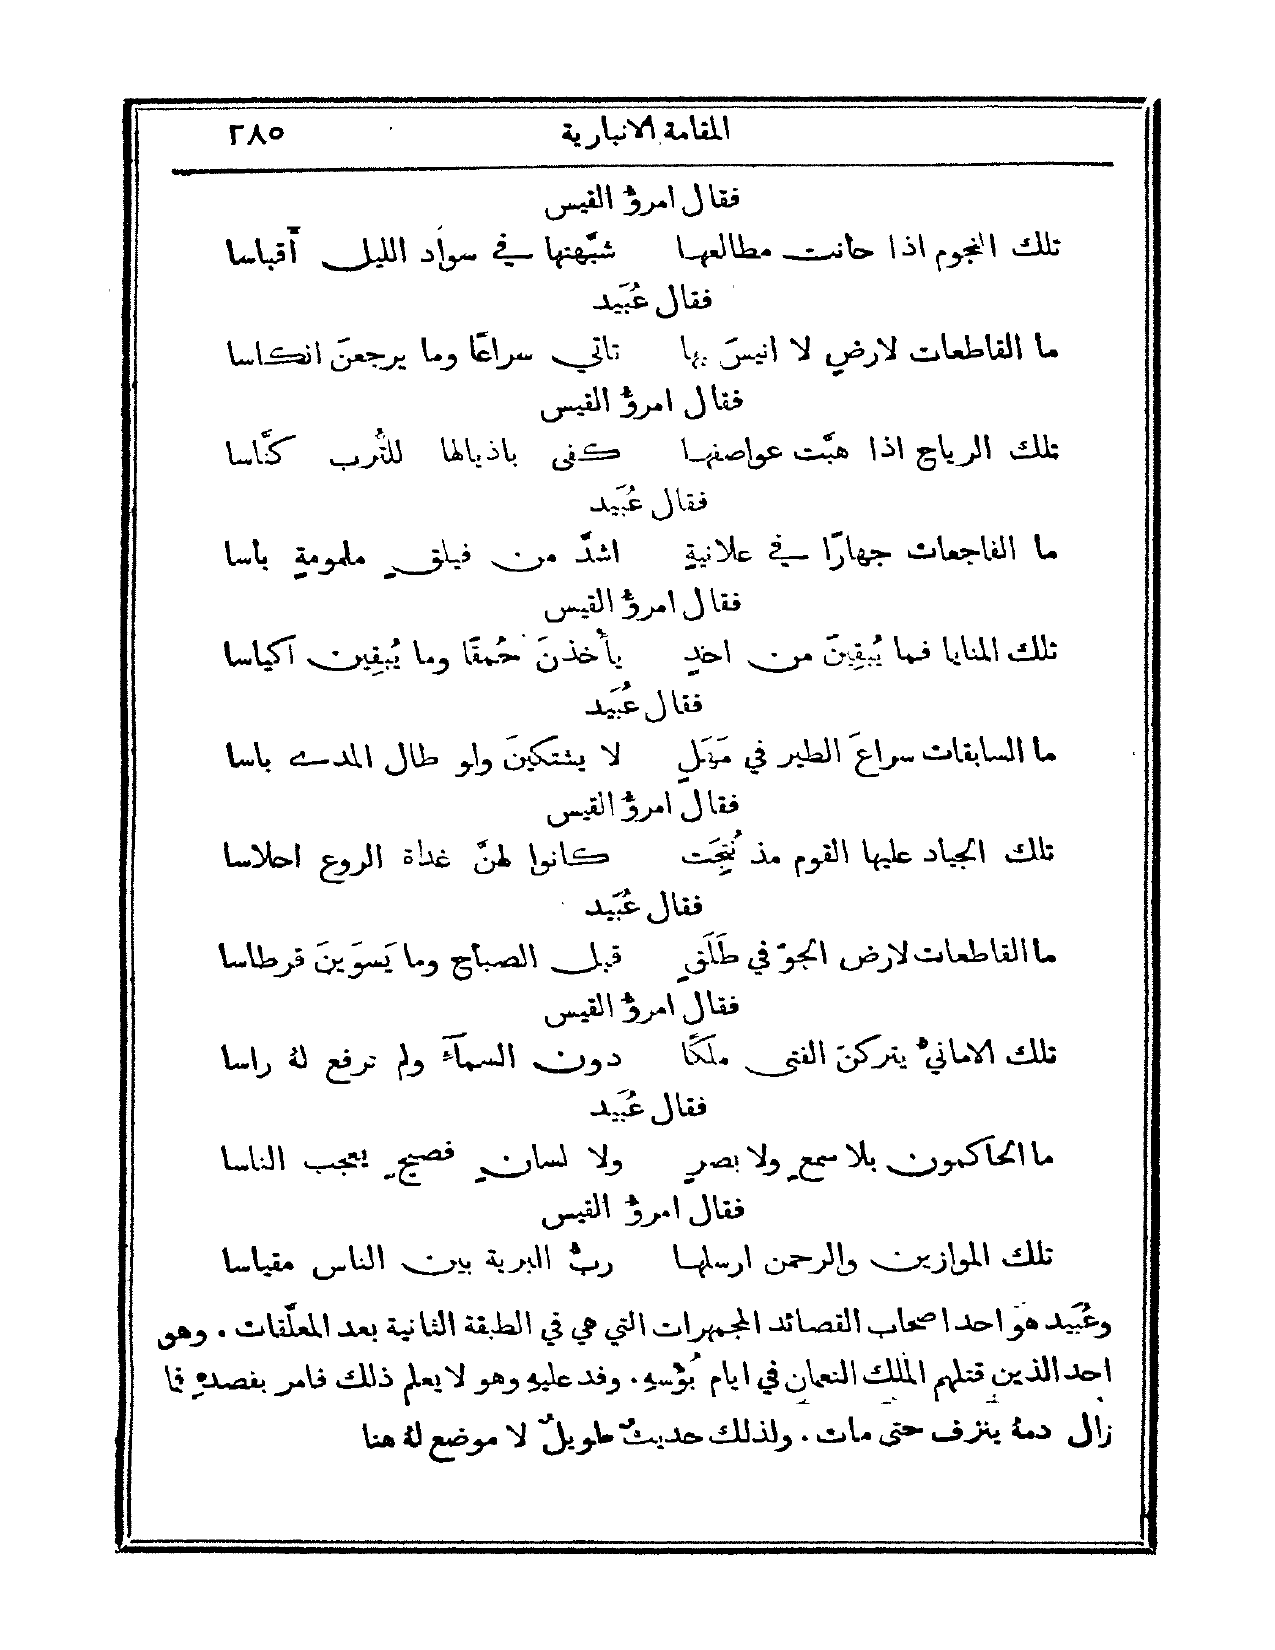 المقامة الانبارية ٢٨٥
فقال امرؤ القيس
تلك النجوم اذا حانت مطالعها شبَّهتها في سواد الليل أقباسا
فقال عُبَيد
ما القاطعات لارضٍ لا انيسَ بها تاتي سراعًا وما يرجعنَ انكاسا
فقال امرؤ القيس
تلك الرياح اذا هبَّت عواصفها كفى باذيالها للتُّرب كنَّاسا
فقال عُبَيد
ما الفاجعات جهارًا في علانيةٍ اشدَّ من فيلقٍ ملمومةٍ باسا
فقال امرؤ القيس
تلك المنايا فما يُبقِينَ من احدٍ يأخذنَ حُمقًا وما يُبقِين آكياسا
فقال عُبَيد
ما السابقات سراعَ الطير في مَهَلٍ لا يشتكينَ ولو طال المدى باسا
فقال امرؤ القيس
تلك الجياد عليها القوم مذ نُتِجَت كانوا لهنَّ غداة الروع احلاسا
فقال عُبَيد
ما القاطعات لارض الجوّ في طَلَقٍ قبل الصباح وما يَسوَينَ قرطاسا
فقال امرؤ القيس
تلك الامانيُّ يتركنَ الفتى ملكًا دون السمآء ولم ترفع لهُ راسا
فقال عُبَيد
ما الحاكمون بلا سمعٍ ولا بصرٍ ولا لسانٍ فصيحٍ يعجب الناسا
فقال امرؤ القيس
تلك الموازين والرحمن ارسلها ربُّ البرية بين الناس مقياسا
وعُبَيد هو احد اصحاب القصائد المجمهرات التي هي في الطبقة الثانية بعد المعلَّقات . وهو
احد الذين قتلهم الملك النعمان في ايام بُؤْسهِ . وفد عليهِ وهو لا يعلم ذلك فامر بفصدهِ فما
زال دمهُ ينزف حتى مات . ولذلك حديثٌ طويلٌ لا موضع لهُ هنا